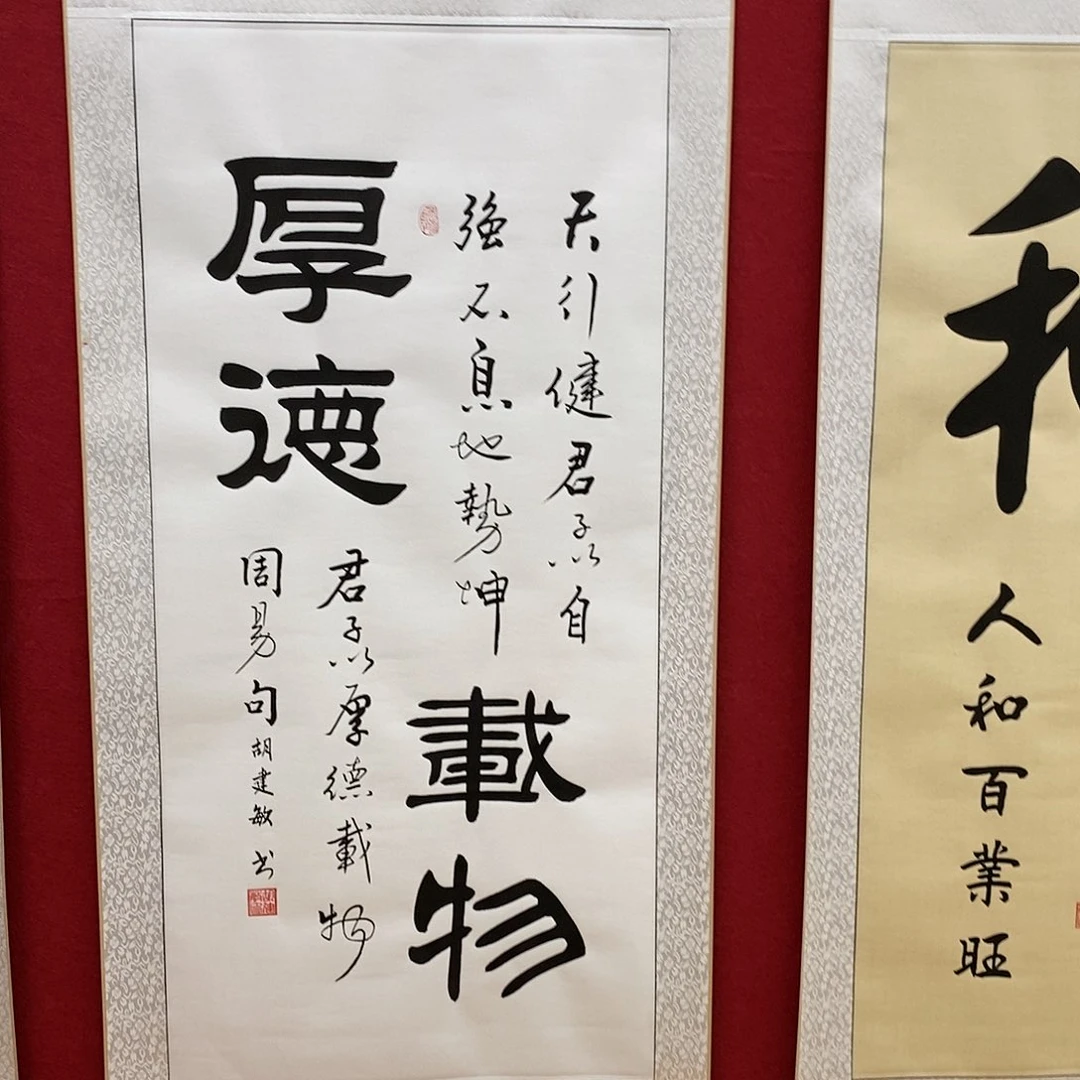 厚德
載物
天行健君子以自
強不息地勢坤
君子以厚德載物
周易句胡建敏书
和
人和百業旺